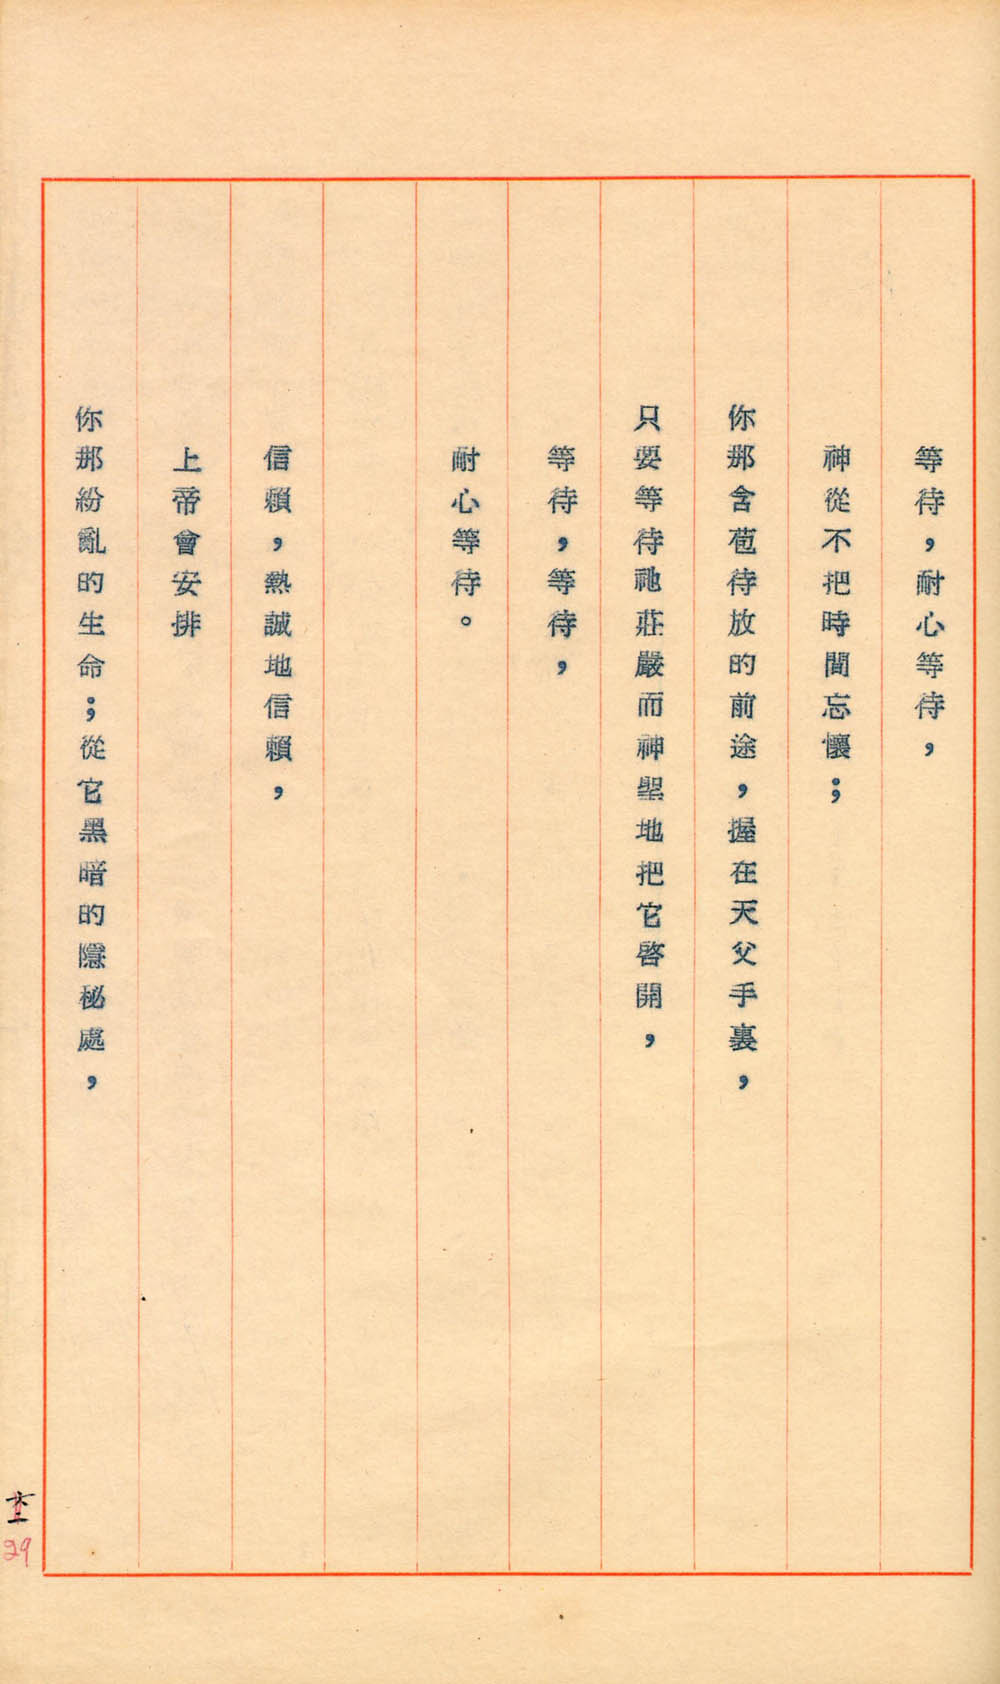 等待，耐心等待，
神從不把時間忘懷；
你那含苞待放的前途，握在天父手裏，
只要等待祂莊嚴而神聖地把它啓開，
等待，等待，
耐心等待。
信賴，熱誠地信賴，
上帝會安排
你那紛亂的生命；從它黑暗的隱秘處，
29